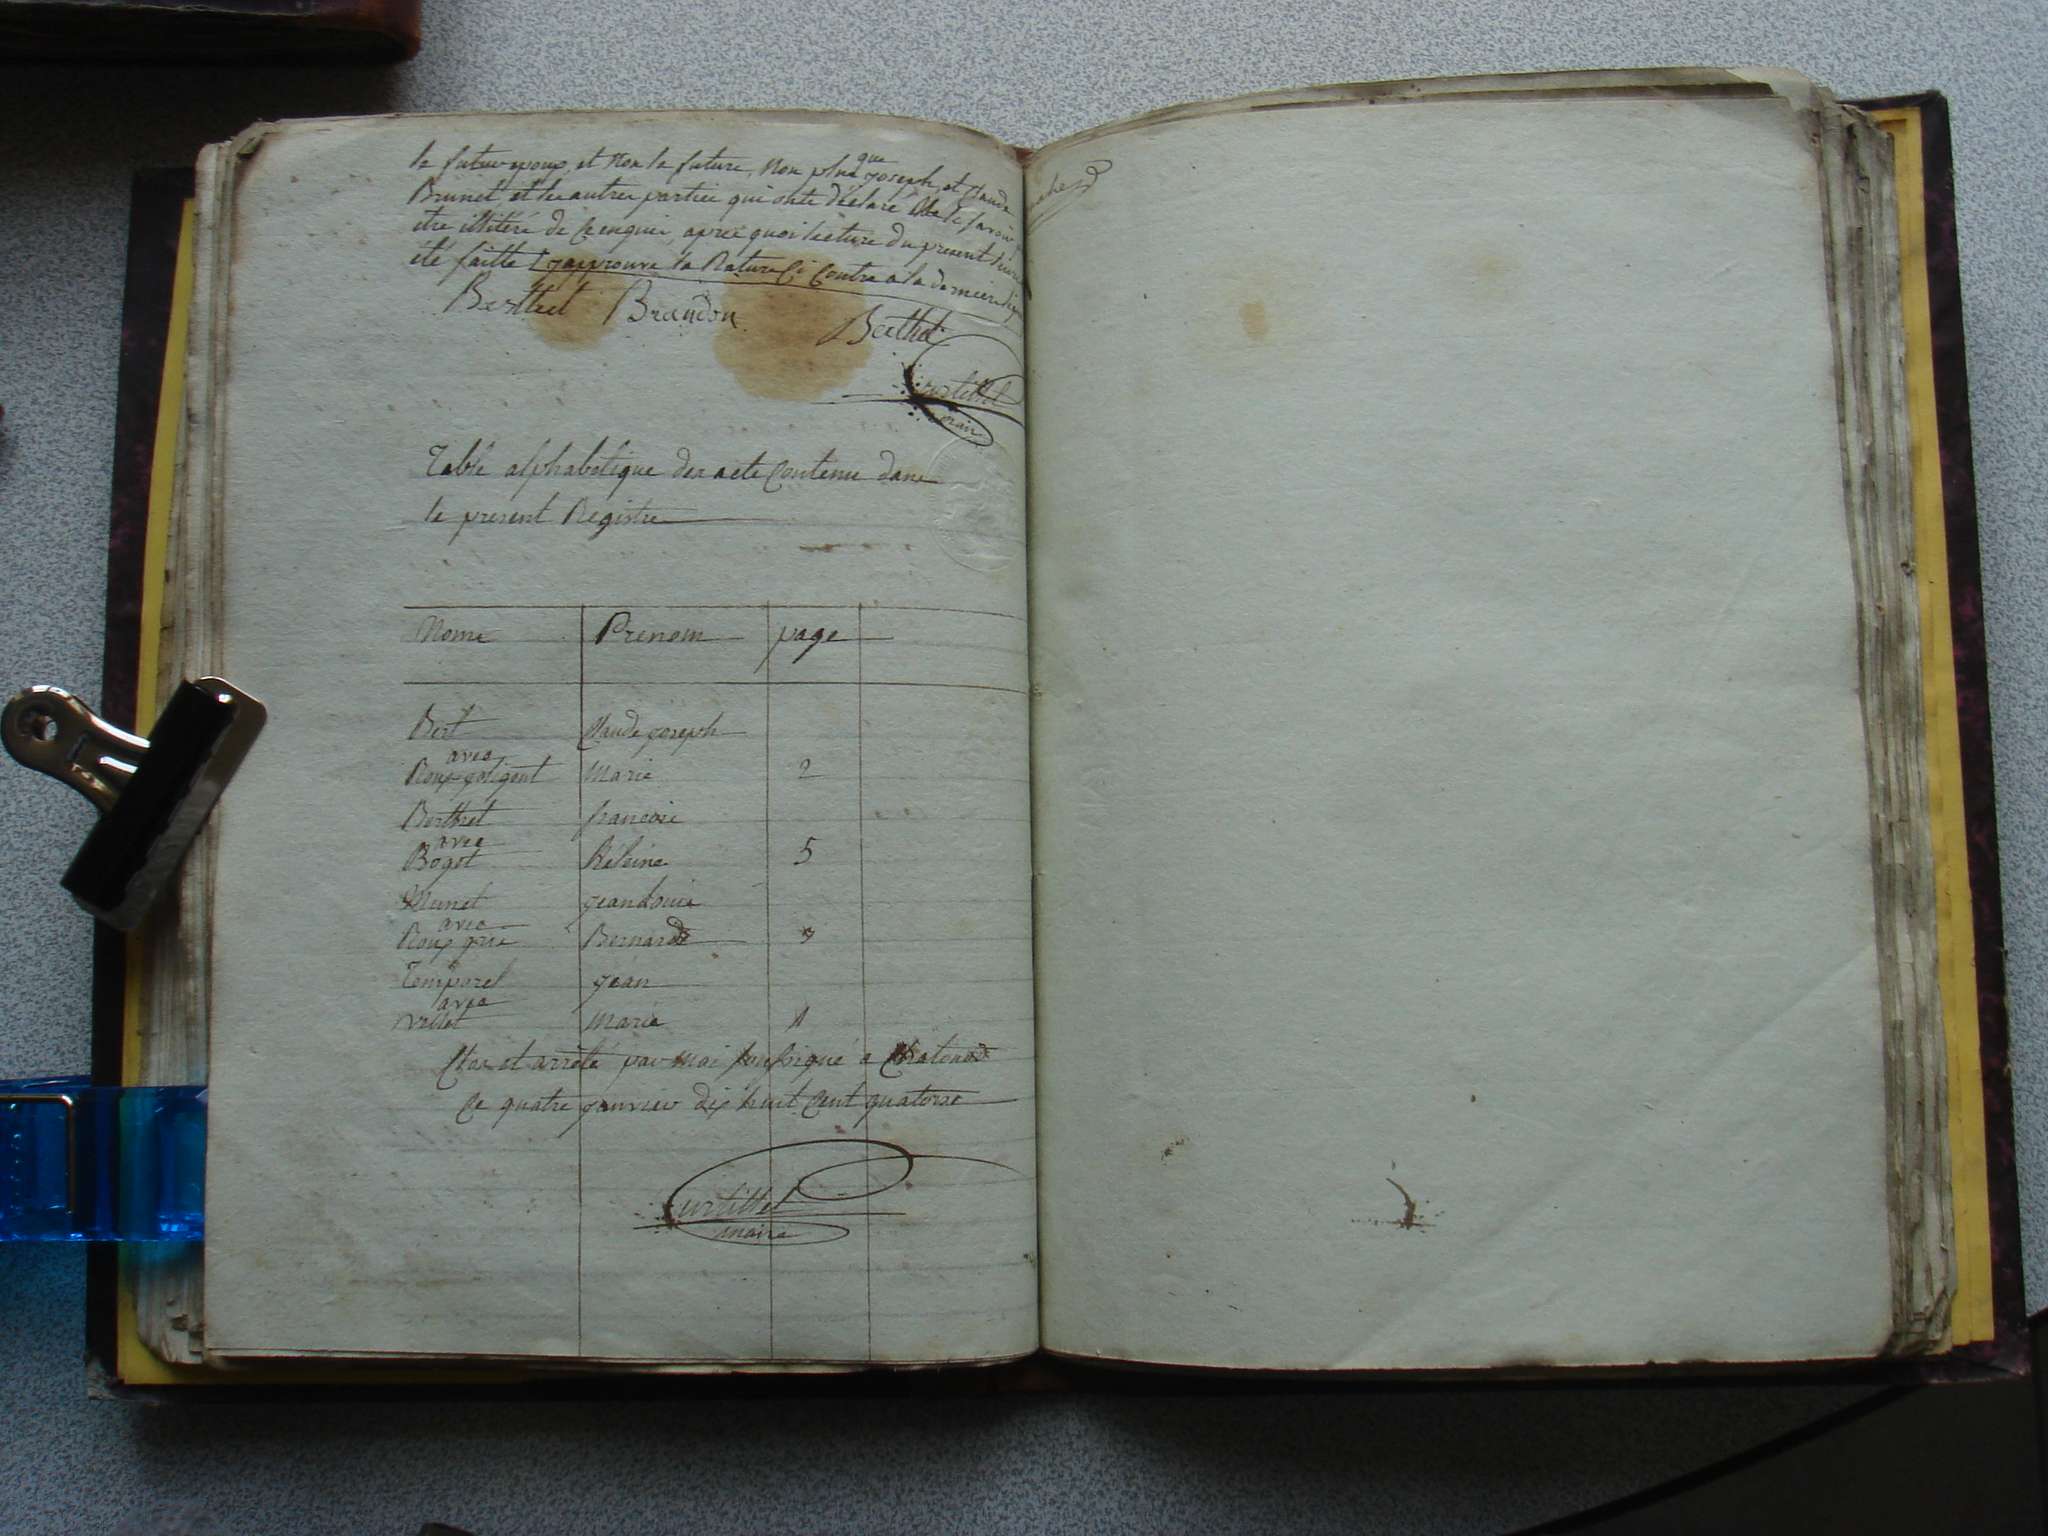 le futur epoux, et non la future, non plus que joseph, et Claude
Brunet et les autres parties qui onts déclaré ne le savoir
etre illitéré de ce enquis, apres quoi lecture du present
été faitte j'approuve la Rature Ci Contre a la derniere ligne
Berthet Brandon Berthet
Curtillet
maire
Table alphabetique des acte Contenu dans
le present Registre
Noms Prenom page
Bert Claude joseph
avec
Roux Marie 2
Berthet francois
avec
Bogot 5
Munet jean Louis
avec
Roux Bernarde
Temporel jean
avec
Vellet Marie 1
Clos et arrêté par moi soussigné a Chatonod
Ce quatre janvier dix huit Cent quatorse
Curtillet
maire